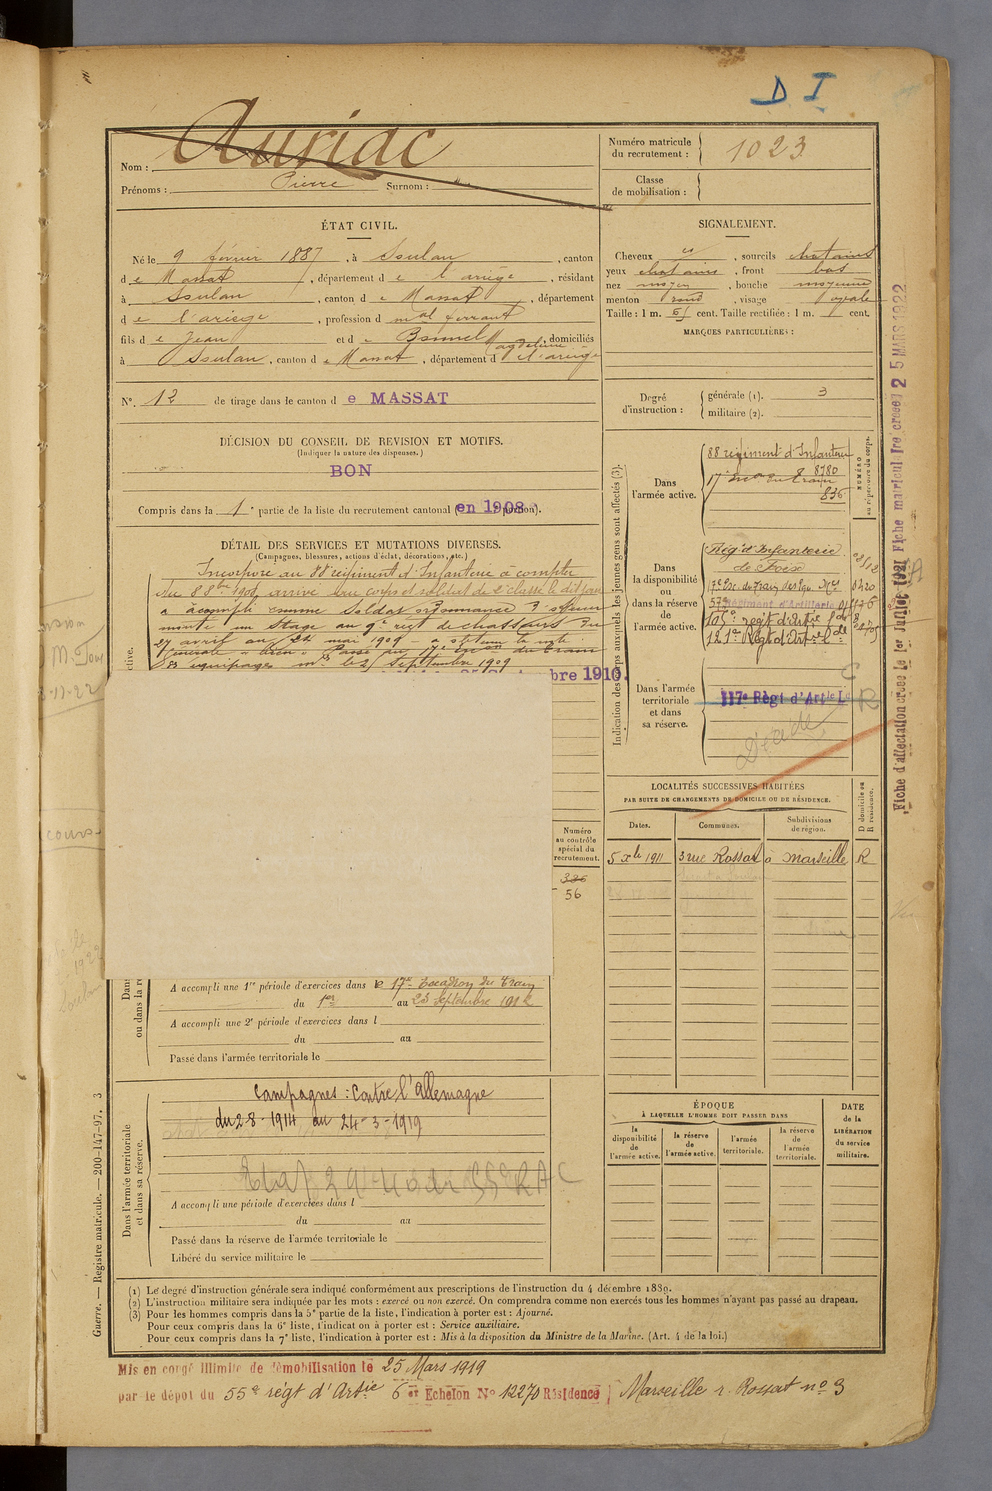 D I
Nom : Auriac
Prénoms : Pierre Surnom :
Numéro matricule du recrutement : 1023
Classe de mobilisation :
ÉTAT CIVIL.
Né le 9 février 1887, à Soulan, canton
d e Massat, département d e l'ariège, résidant
à Soulan, canton d e Massat, département
d e l'ariège, profession d mal ferrant
fils d e Jean et d e Bonnel Magdeleine, domiciliés
à Soulan, canton d e Massat, département d e l'ariège
N°. 12 de tirage dans le canton d e MASSAT
DÉCISION DU CONSEIL DE REVISION ET MOTIFS.
(Indiquer la nature des dispenses.)
BON
Compris dans la 1e partie de la liste du recrutement cantonal (en 1908 portion).
SIGNALEMENT.
Cheveux et, sourcils chatains
yeux chatains, front bas
nez moyen, bouche moyenne
menton rond, visage ovale
Taille : 1 m. 61 cent. Taille rectifiée : 1 m. cent.
MARQUES PARTICULIÈRES :
Degré d'instruction :
générale (1). 3
militaire (2).
DÉTAIL DES SERVICES ET MUTATIONS DIVERSES.
(Campagnes, blessures, actions d'éclat, décorations, etc.)
Incorporé au 88e régiment d'Infanterie à compter
du 8 8bre 1908, arrivé au corps et soldat de 2e classe le dit jour
a accompli comme Soldat ordonnance
monté un Stage au 9e regt de chasseurs du
27 avril au 22 mai 1909 a obtenu la note
Générale « bien » Passé au 17e escon du train
des équipages mres le 21 Septembre 1909
bre 1910.
Indication des corps auxquels les jeunes gens sont affectés (3).
NUMÉRO au répertoire du corps.
Dans l'armée active.
88 regiment d'Infanterie
8780
17e escon du train
836
Dans la disponibilité ou dans la réserve de l'armée active.
Rég. d'Infanterie
de Foix
17e Esc. du Train des Equ. Mres 0420
57e Régiment d'Artillerie
105e regt d'Artie
121e Regt d'Artie
Dans l'armée territoriale et dans sa réserve.
117e Régt d'Artie Lde
C
R
LOCALITÉS SUCCESSIVES HABITÉES
PAR SUITE DE CHANGEMENTS DE DOMICILE OU DE RÉSIDENCE.
Dates. Communes. Subdivisions de région. D domicile ou R résidence.
5 Xbre 1911 3 rue Rossat à Marseille R
Numéro au contrôle spécial du recrutement.
336
56
A accompli une 1re période d'exercices dans le 17e Escadron du Train
du 1er au 23 septembre 1912
A accompli une 2e période d'exercices dans l
du au
Passé dans l'armée territoriale le
Dans l'armée territoriale et dans sa réserve.
Campagnes : Contre l'Allemagne
du 2-8-1914 au 24-3-1919
A accompli une période d'exercices dans l
du au
Passé dans la réserve de l'armée territoriale le
Libéré du service militaire le
ÉPOQUE
À LAQUELLE L'HOMME DOIT PASSER DANS
la disponibilité de l'armée active.
la réserve de l'armée active.
l'armée territoriale.
la réserve de l'armée territoriale.
DATE de la LIBÉRATION du service militaire.
(1) Le degré d'instruction générale sera indiqué conformément aux prescriptions de l'instruction du 4 décembre 1889.
(2) L'instruction militaire sera indiquée par les mots : exercé ou non exercé. On comprendra comme non exercés tous les hommes n'ayant pas passé au drapeau.
(3) Pour les hommes compris dans la 5e partie de la liste, l'indication à porter est : Ajourné.
Pour ceux compris dans la 6e liste, l'indication à porter est : Service auxiliaire.
Pour ceux compris dans la 7e liste, l'indication à porter est : Mis à la disposition du Ministre de la Marine. (Art. 4 de la loi.)
Mis en congé illimité de démobilisation le 25 Mars 1919
par le dépôt du 55e régt d'Artie 6er Echelon N° 12270 Résidence Marseille r. Rossat n° 3
Guerre. — Registre matricule. — 200-147-97. 3
Fiche d'affectation créée le 1er Juillet 1921 Fiche matriculaire créée le 25 MARS 1922